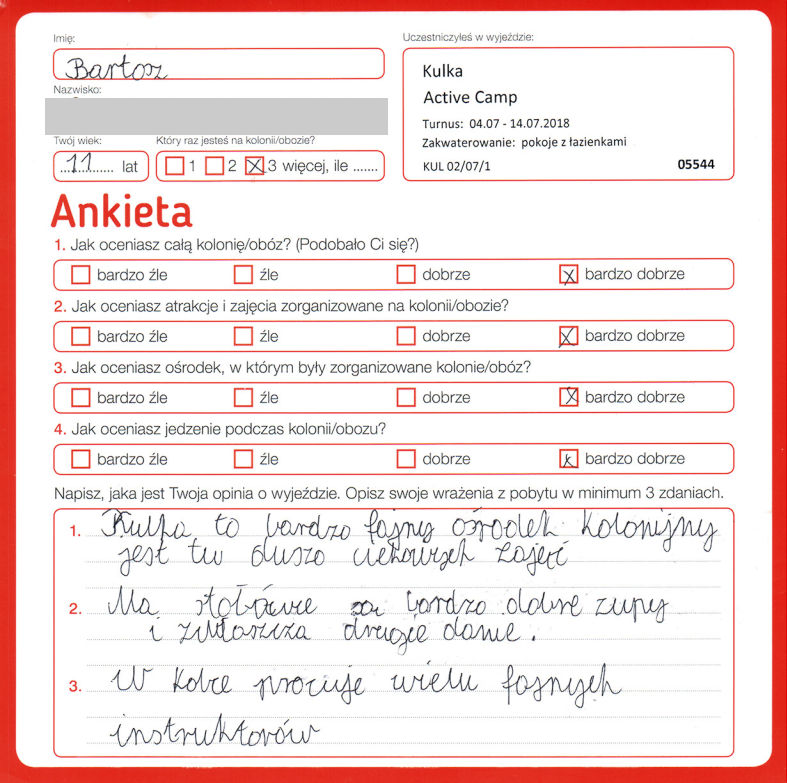 Imię:
Bartosz
Nazwisko:
Twój wiek:
11 lat
Który raz jesteś na kolonii/obozie?
1 2 x 3 więcej, ile .......
Uczestniczyłeś w wyjeździe:
Kulka
Active Camp
Turnus: 04.07 - 14.07.2018
Zakwaterowanie: pokoje z łazienkami
KUL 02/07/1 05544
Ankieta
1. Jak oceniasz całą kolonię/obóz? (Podobało Ci się?)
bardzo źle źle dobrze x bardzo dobrze
2. Jak oceniasz atrakcje i zajęcia zorganizowane na kolonii/obozie?
bardzo źle źle dobrze x bardzo dobrze
3. Jak oceniasz ośrodek, w którym były zorganizowane kolonie/obóz?
bardzo źle źle dobrze x bardzo dobrze
4. Jak oceniasz jedzenie podczas kolonii/obozu?
bardzo źle źle dobrze x bardzo dobrze
Napisz, jaka jest Twoja opinia o wyjeździe. Opisz swoje wrażenia z pobytu w minimum 3 zdaniach.
1. Kulka to bardzo fajny ośrodek kolonijny
jest tu duszo ciekawych zajęć
2. Na stołówce są bardzo dobre zupy
i zwłaszcza drugie danie.
3. W Kolce pracuje wielu fajnych
instruktorów